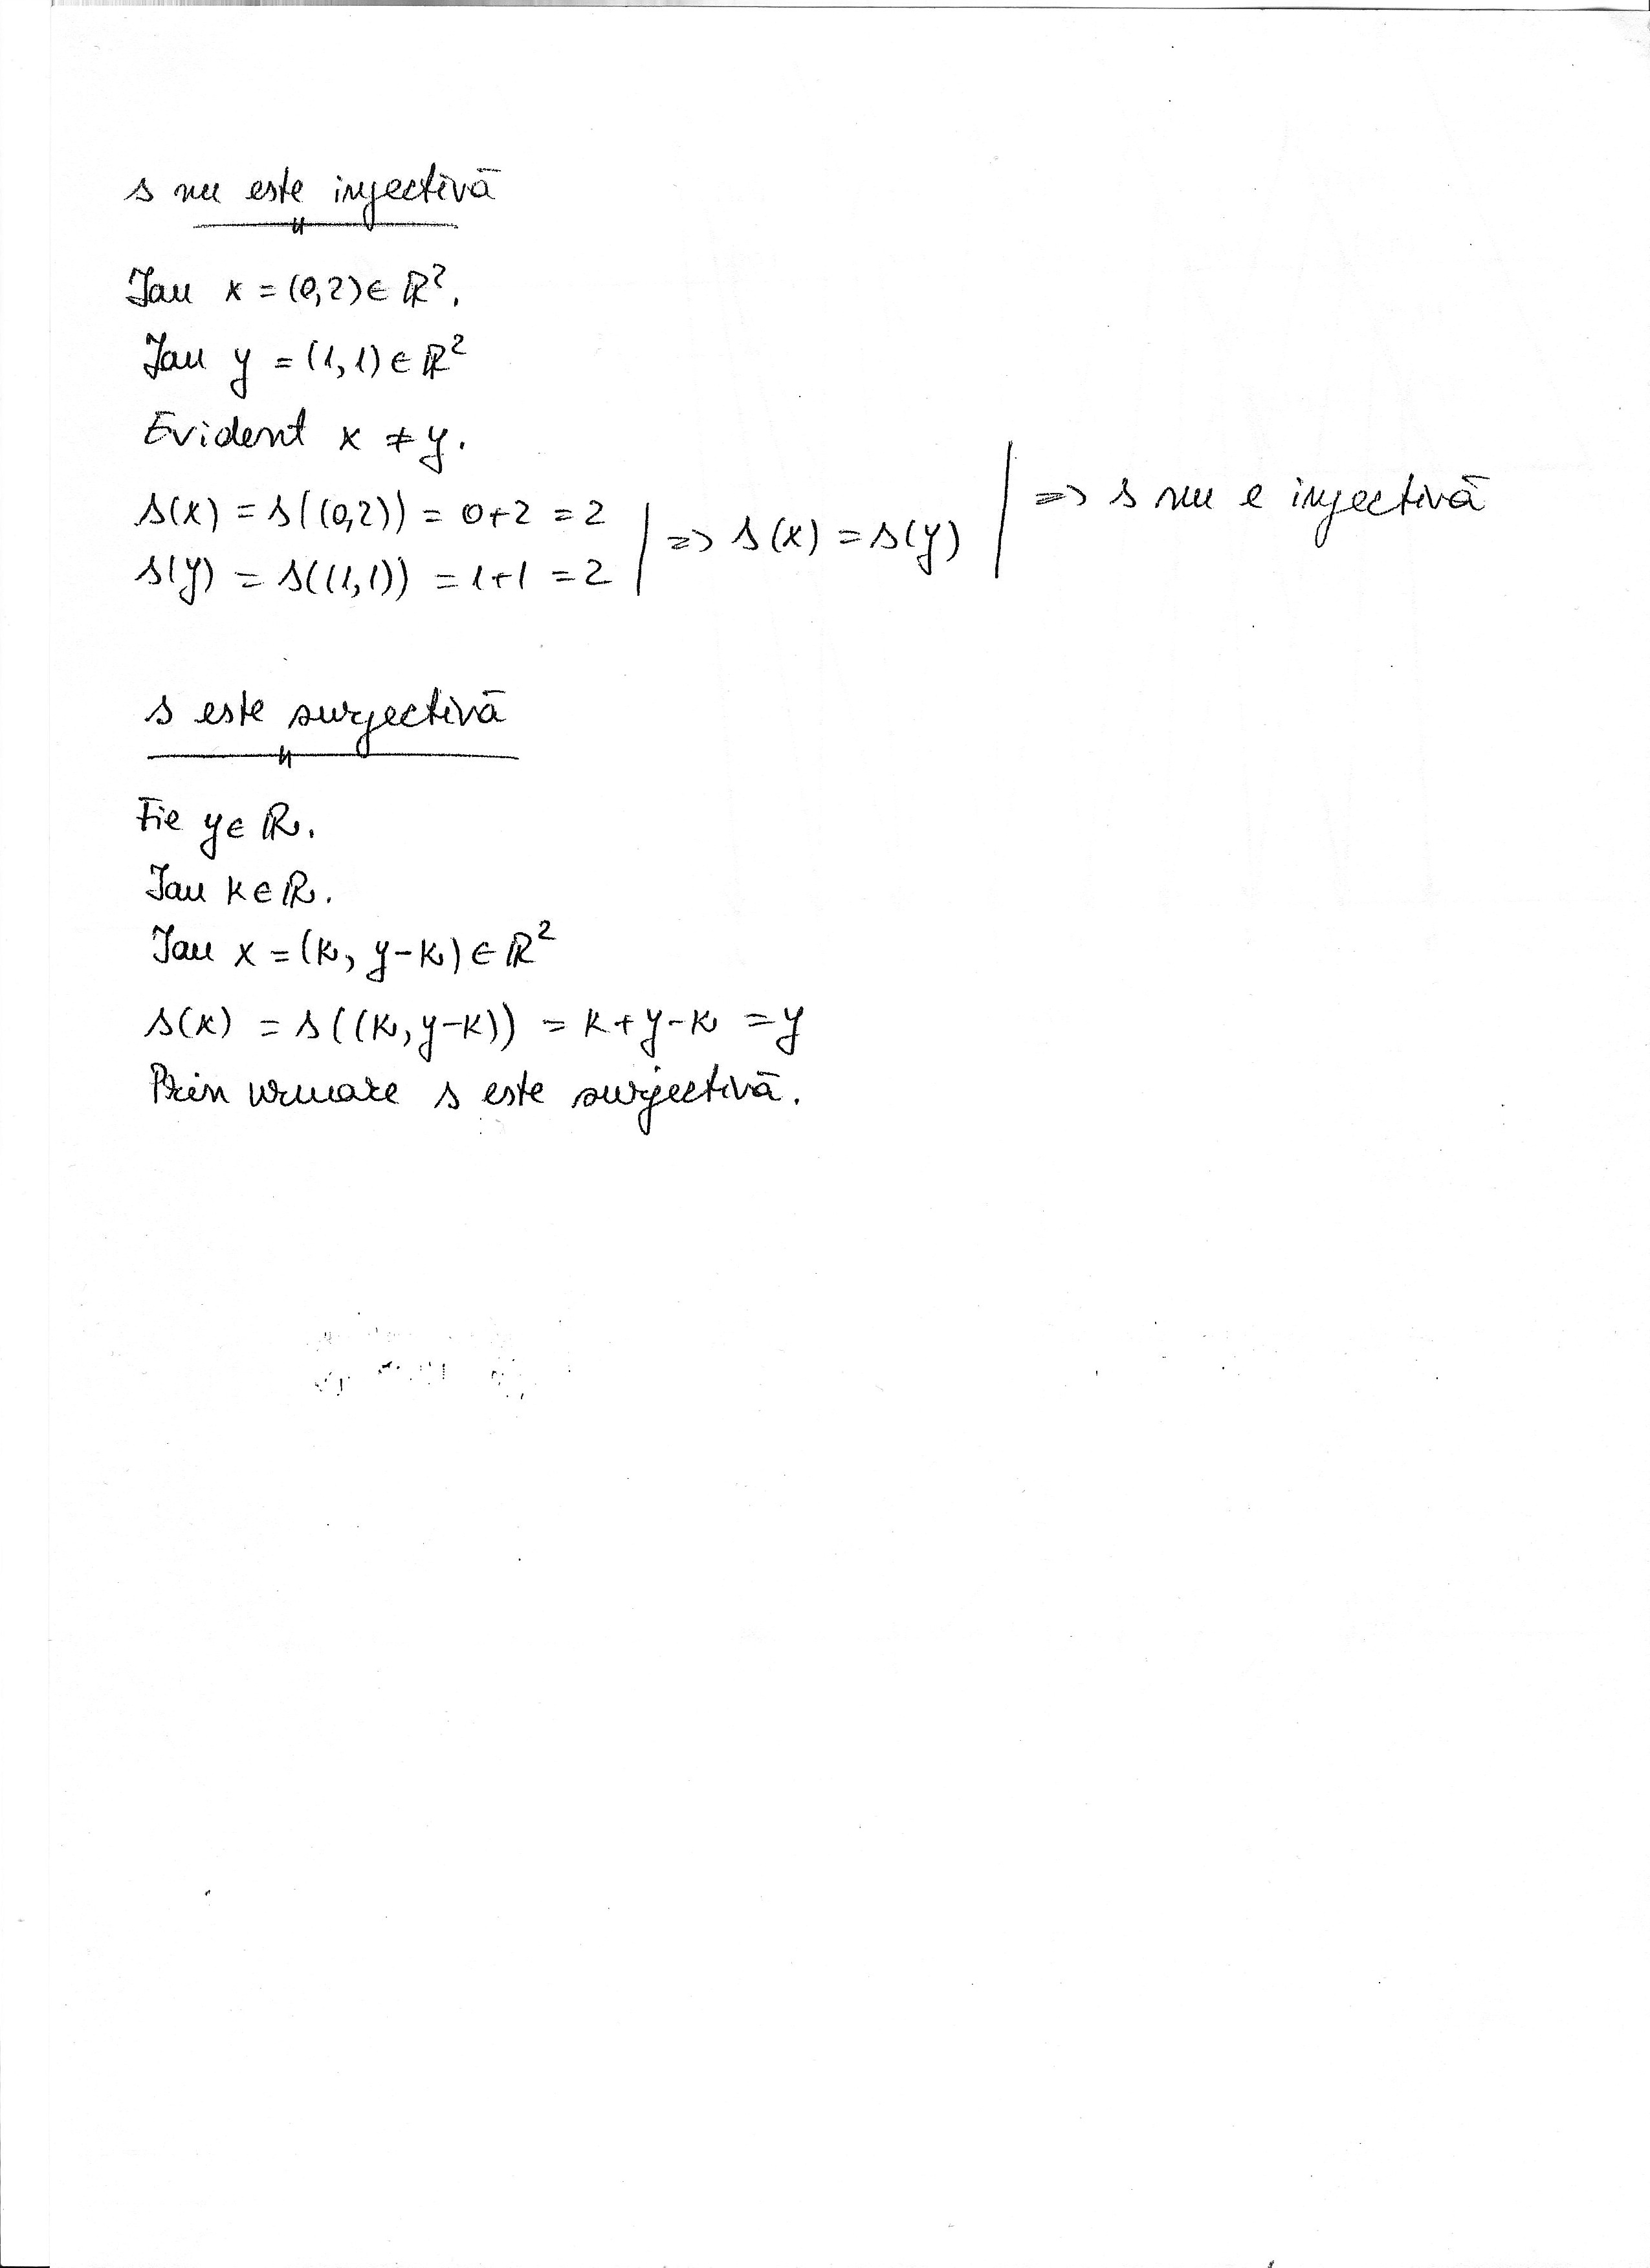 s nu este injectivă
Iau x = (0,2) ∈ ℝ².
Iau y = (1,1) ∈ ℝ²
Evident x ≠ y.
s(x) = s((0,2)) = 0+2 = 2
s(y) = s((1,1)) = 1+1 = 2
=> s(x) = s(y)
=> s nu e injectivă
s este surjectivă
Fie y ∈ ℝ.
Iau k ∈ ℝ.
Iau x = (k, y-k) ∈ ℝ²
s(x) = s((k, y-k)) = k+y-k = y
Prin urmare s este surjectivă.